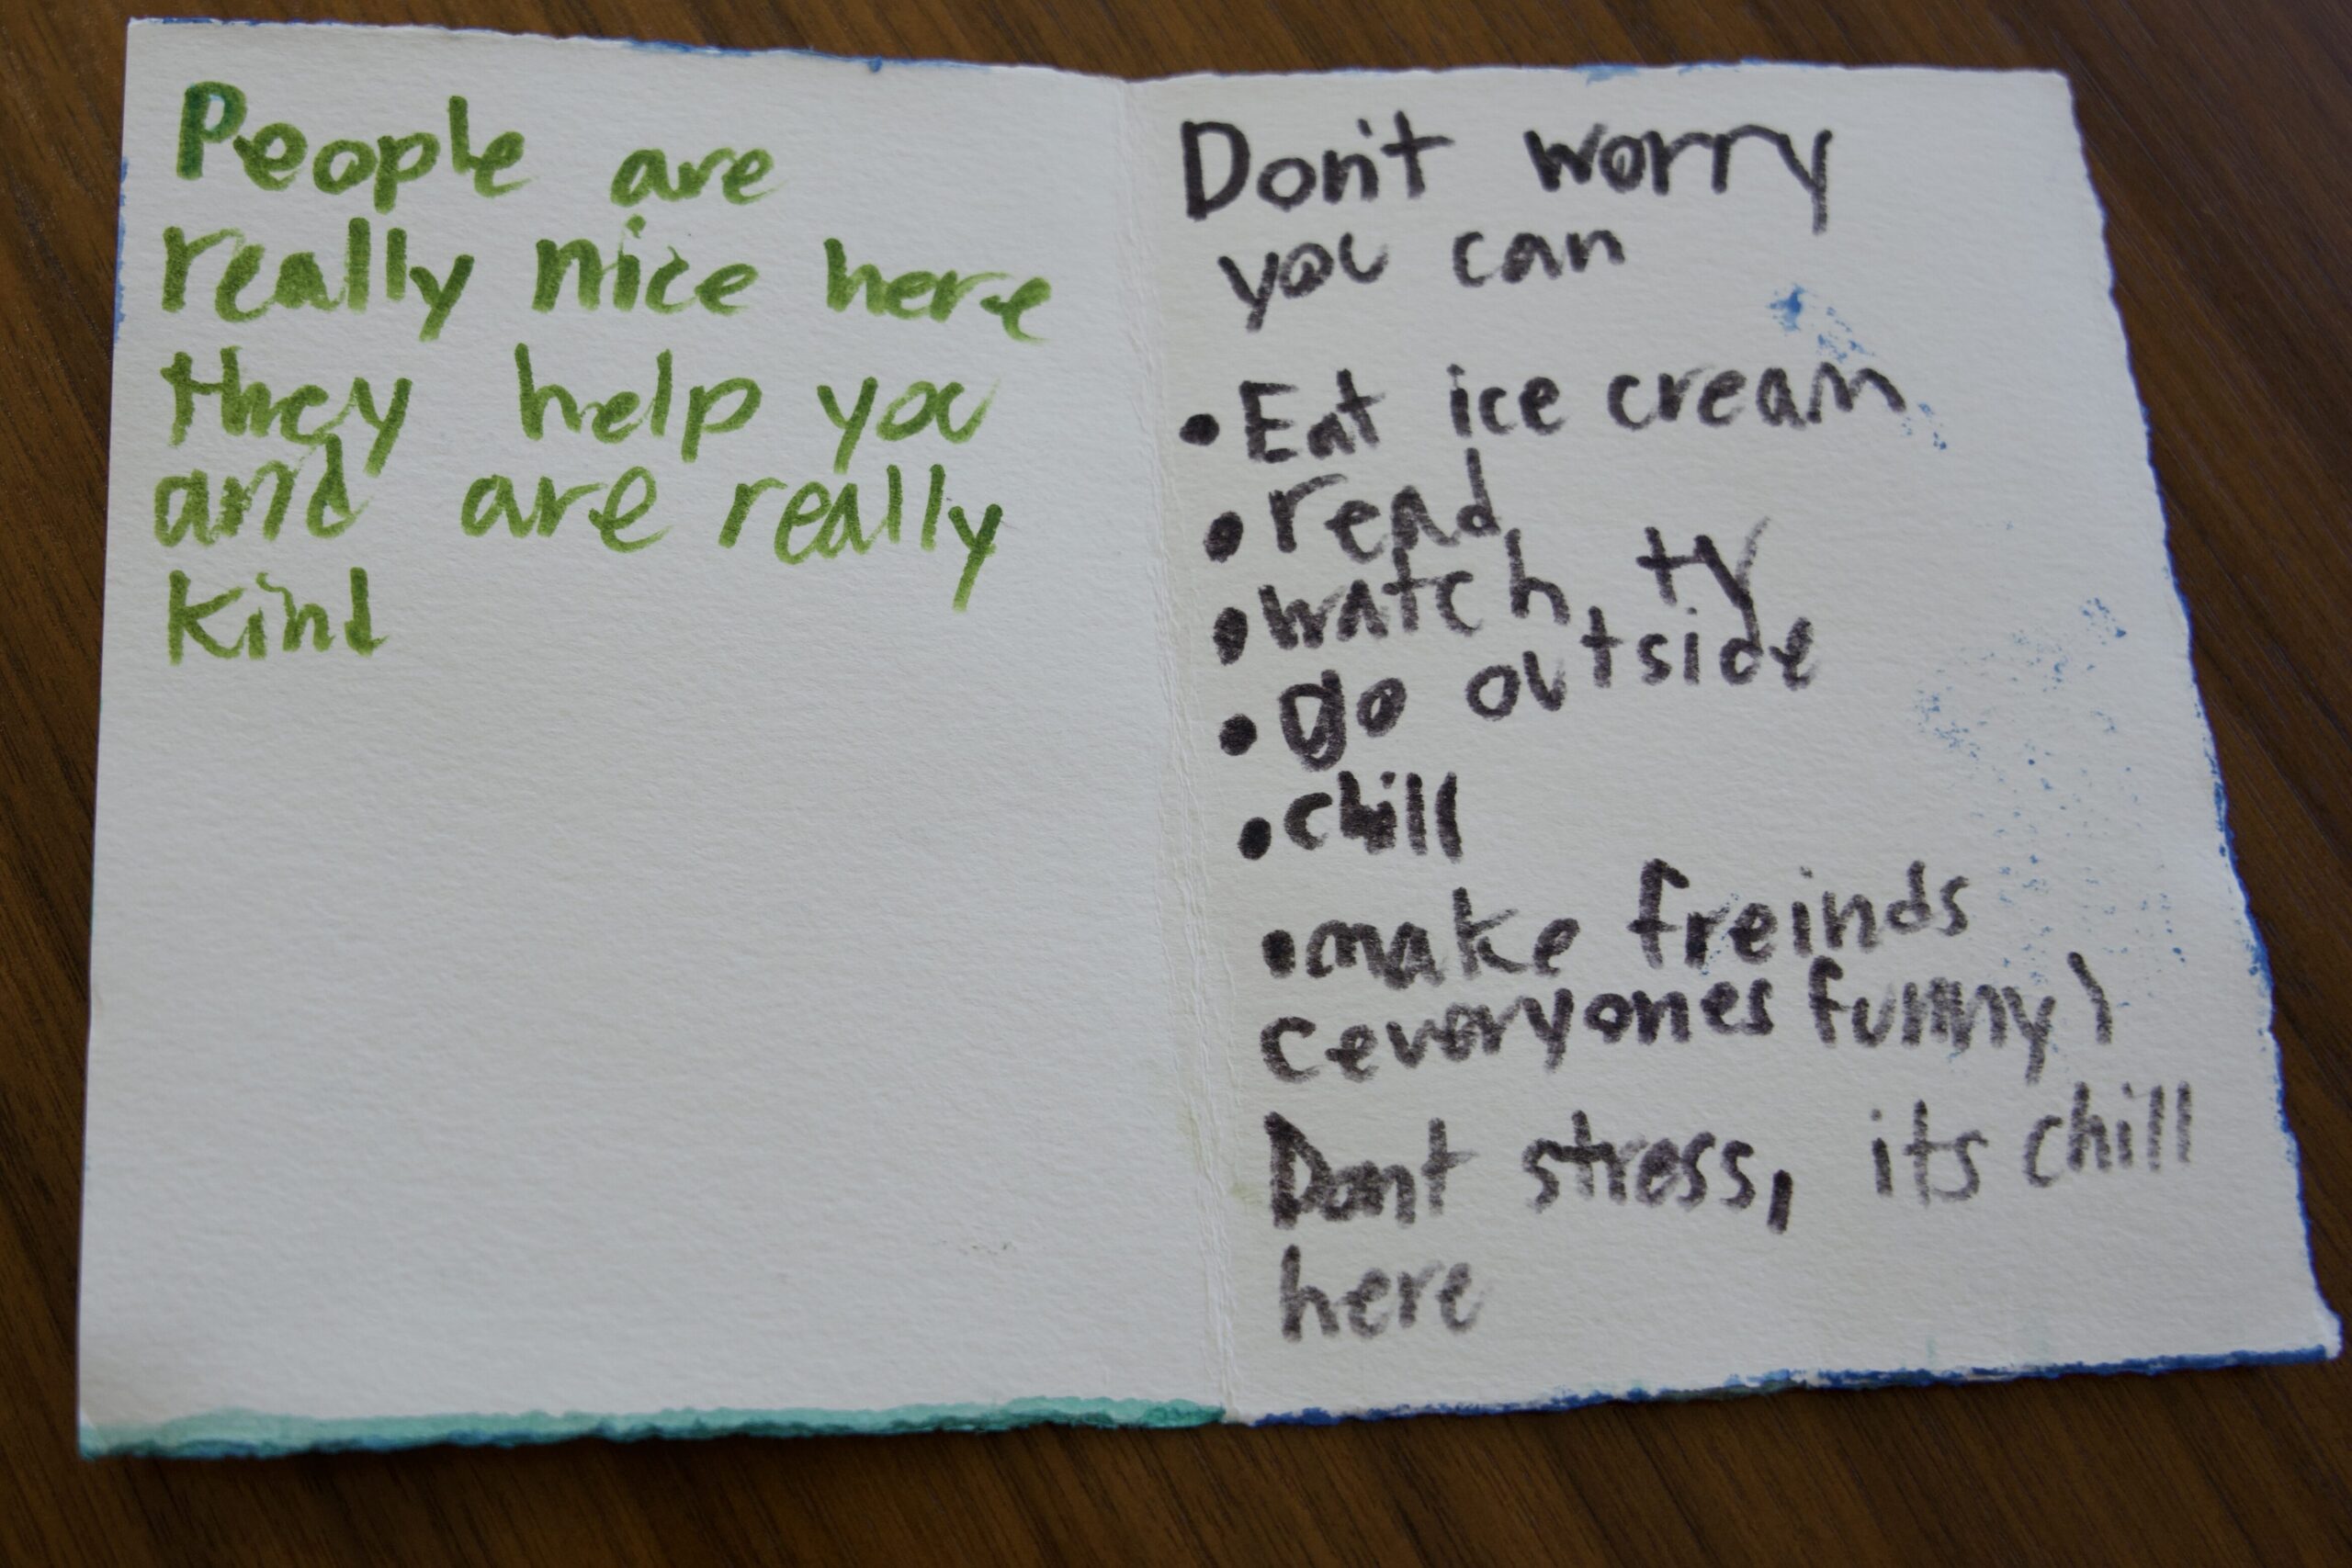 People are
really nice here
they help you
and are really
kind
Don't worry
you can
• Eat ice cream
• read
• watch tv
• go outside
• chill
• make freinds
(everyones funny)
Dont stress, its chill
here